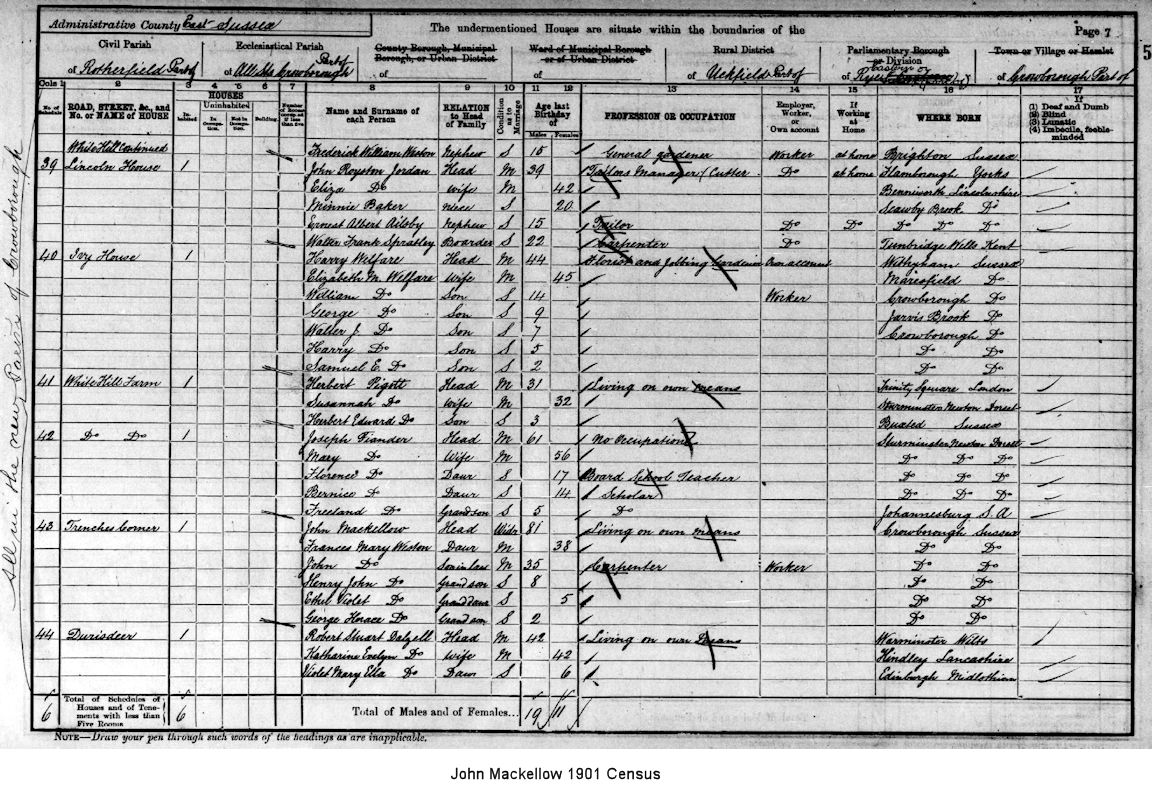 Administrative County East Sussex
The undermentioned Houses are situate within the boundaries of the
Page 7
5
Civil Parish
of Rotherfield Part of
Ecclesiastical Parish
of All Sts Crowborough Part of
County Borough, Municipal Borough, or Urban District
of
Ward of Municipal Borough or of Urban District
of
Rural District
of Uckfield Part of
Parliamentary Borough or Division
of
Town or Village or Hamlet
of Crowborough Part of
Cols 1 2 3 4 5 6 7 8 9 10 11 12 13 14 15 16 17
No. of Schedule
ROAD, STREET, &c., and No. or NAME of HOUSE
HOUSES
Inhabited
Uninhabited
In Occupation.
Not in Occupation.
Building.
Number of Rooms occupied if less than five
Name and Surname of each Person
RELATION to Head of Family
Condition as to Marriage
Age last Birthday of
Males Females
PROFESSION OR OCCUPATION
Employer, Worker, or Own account
If Working at Home
WHERE BORN
If
(1) Deaf and Dumb
(2) Blind
(3) Lunatic
(4) Imbecile, feeble-minded
White Hill Continued Frederick William Weston Nephew S 15 General gardener Worker at home Brighton Sussex
39 Lincoln House 1 John Royston Jordan Head M 39 Tailors Manager / Cutter Do at home Flamborough Yorks
Eliza Do Wife M 42 Benniworth Lincolnshire
Minnie Baker niece S 20 Scawby Brook Do
Ernest Albert Ailsby Nephew S 15 Tailor Do Do Do Do Do
Walter Frank Spratley Boarder S 22 Carpenter Do Tunbridge Wells Kent
40 Ivy House 1 Harry Welfare Head M 44 Florist and Jobbing Gardener Own account Withyham Sussex
Elizabeth M. Welfare Wife M 45 Maresfield Do
William Do Son S 14 Worker Crowborough Do
George Do Son S 9 Jarvis Brook Do
Walter J. Do Son S 7 Crowborough Do
Harry Do Son S 5 Do Do
Samuel E. Do Son S 2 Do Do
41 White Hill Farm 1 Herbert Pigott Head M 31 Living on own means Trinity Square London
Susannah Do Wife M 32 Sturminster Newton Dorset
Herbert Edward Do Son S 3 Buxted Sussex
42 Do Do 1 Joseph Fiander Head M 61 No Occupation Sturminster Newton Dorset
Mary Do Wife M 56 Do Do Do
Florence Do Daur S 17 Board School Teacher Do Do Do
Bernice Do Daur S 14 Scholar Do Do Do
Freeland Do Grandson S 5 Do Johannesburg S. A
43 Trenches Corner 1 John Mackellow Head Widr 81 Living on own means Crowborough Sussex
Frances Mary Weston Daur M 38 Do Do
John Do Son in law M 35 Carpenter Worker Do Do
Henry John Do Grandson S 8 Do Do
Ethel Violet Do Grand daur S 5 Do Do
George Horace Do Grandson S 2 Do Do
44 Durisdeer 1 Robert Stuart Dalzell Head M 42 Living on own Means Warminster Wilts
Katharine Evelyn Do Wife M 42 Hindley Lancashire
Violet Mary Ella Do Daur S 6 Edinburgh Midlothian
6 Total of Schedules of Houses and of Tenements with less than Five Rooms 6 Total of Males and of Females... 19 11
NOTE—Draw your pen through such words of the headings as are inapplicable.
All in the new Parish of Crowborough
John Mackellow 1901 Census